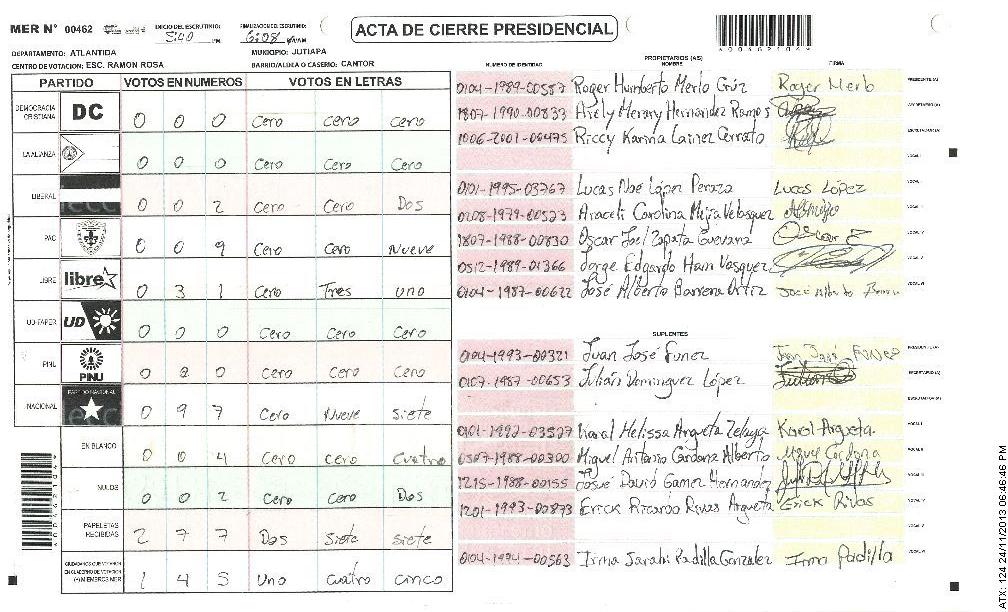 MER Nº 00462
INICIO DEL ESCRUTINIO: 5:40 PM
FINALIZACION DEL ESCRUTINIO: 6:08
ACTA DE CIERRE PRESIDENCIAL
DEPARTAMENTO: ATLANTIDA
MUNICIPIO: JUTIAPA
CENTRO DE VOTACION: ESC. RAMON ROSA
BARRIO/ALDEA O CASERIO: CANTOR
PARTIDO VOTOS EN NUMEROS VOTOS EN LETRAS
DEMOCRACIA CRISTIANA DC 0 0 0 Cero cero Cero
LA ALIANZA 0 0 0 Cero Cero Cero
LIBERAL 0 0 2 Cero Cero Dos
PAC 0 0 9 Cero Cero Nueve
LIBRE libre 0 3 1 Cero Tres uno
UD-FAPER UD 0 0 0 Cero Cero Cero
PINU PINU 0 0 0 cero cero Cero
NACIONAL PARTIDO NACIONAL 0 9 7 Cero Nueve siete
EN BLANCO 0 0 4 Cero cero Cuatro
NULOS 0 0 2 Cero Cero Dos
PAPELETAS RECIBIDAS 2 7 7 Dos Siete siete
CIUDADANOS QUE VOTARON EN CUADERNO DE VOTACION (+) MIEMBROS MER 1 4 5 Uno Cuatro cinco
PROPIETARIOS (AS)
NUMERO DE IDENTIDAD NOMBRE FIRMA
0104-1989-00587 Roger Humberto Merlo Crúz Roger Merlo PRESIDENTE (A)
1807-1990-00833 Arely Merary Hernandez Ramos SECRETARIO (A)
1006-2001-00475 Riccy Karina Lainez Cerrato ESCRUTADOR (A)
0101-1995-03767 Lucas Noé López Peraza Lucas López
0208-1979-00523 Araceli Carolina Mejra Velasquez
1807-1988-00830 Oscar Joel Zapata Guevara Oscar Z
0512-1989-01366 Jorge Edgardo Ham Vasquez
0104-1987-00622 José Alberto Barrena Ortiz José Alberto
SUPLENTES
0104-1993-00321 Juan José Funez PRESIDENTE (A)
0107-1987-00653 Julián Dominguez López Julian SECRETARIO (A)
ESCRUTADOR (A)
0101-1992-03527 Karol Melissa Argueta Zelaya Karol Argueta
0507-1988-00300 Miguel Antonio Cardona Alberto Miguel Cardona
1215-1988-00155 Josué David Gamez Hernandez
1201-1993-00873 Erick Ricardo Rivas Argueta Erick Rivas
0104-1994-00563 Irma Sarahi Padilla Gonzalez Irma Padilla
ATX: 124 24/11/2013 06:46:46 PM